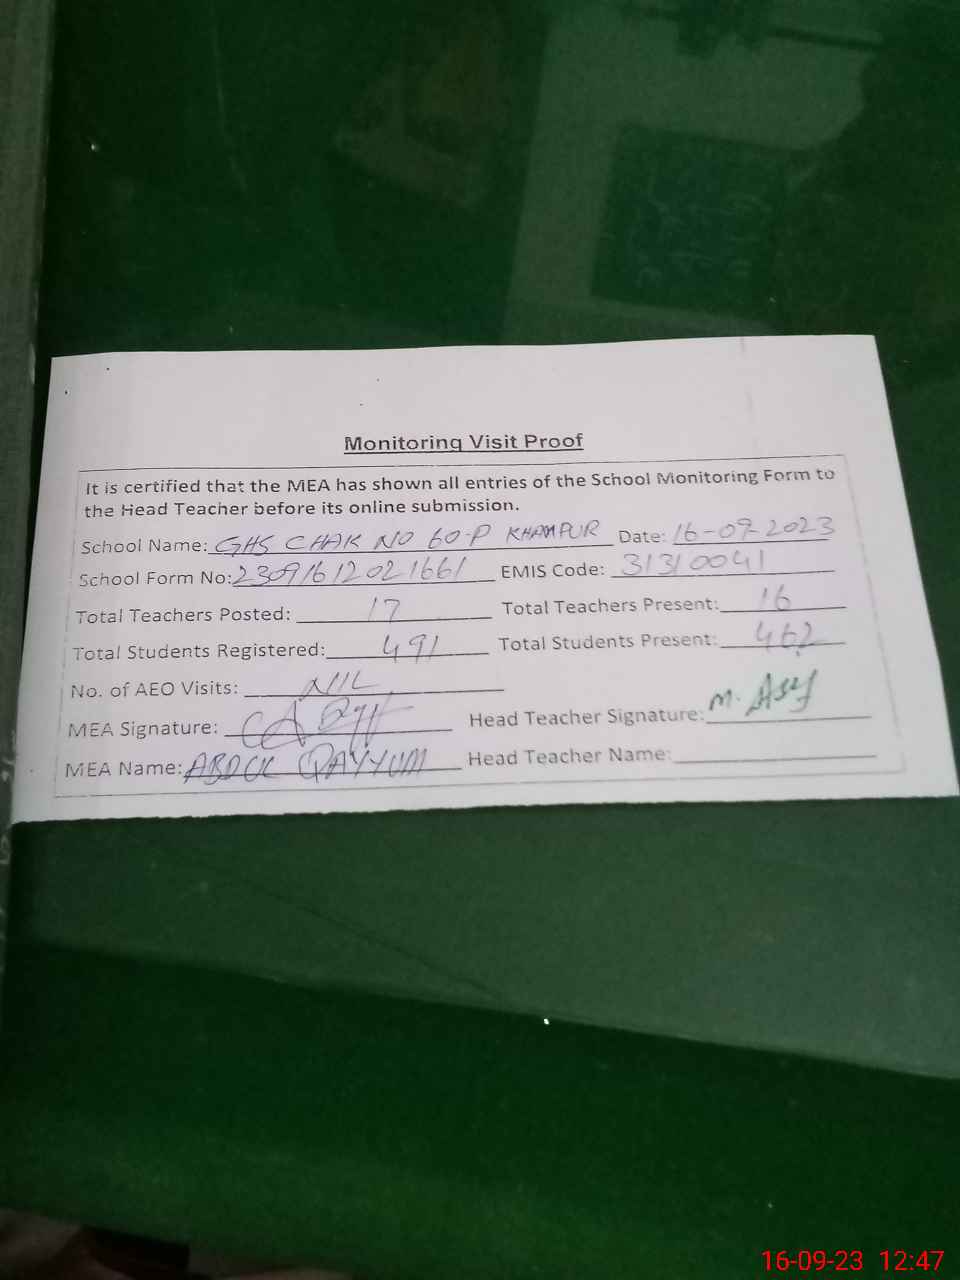 Monitoring Visit Proof
It is certified that the MEA has shown all entries of the School Monitoring Form to
the Head Teacher before its online submission.
School Name: GHS CHAK NO 60-P KHANPUR Date: 16-09-2023
School Form No: 23091612021661 EMIS Code: 31310041
Total Teachers Posted: 17 Total Teachers Present: 16
Total Students Registered: 491 Total Students Present: 462
No. of AEO Visits: NIL
MEA Signature: Head Teacher Signature: M. Asif
MEA Name: ABDUL QAYYUM Head Teacher Name:
16-09-23 12:47